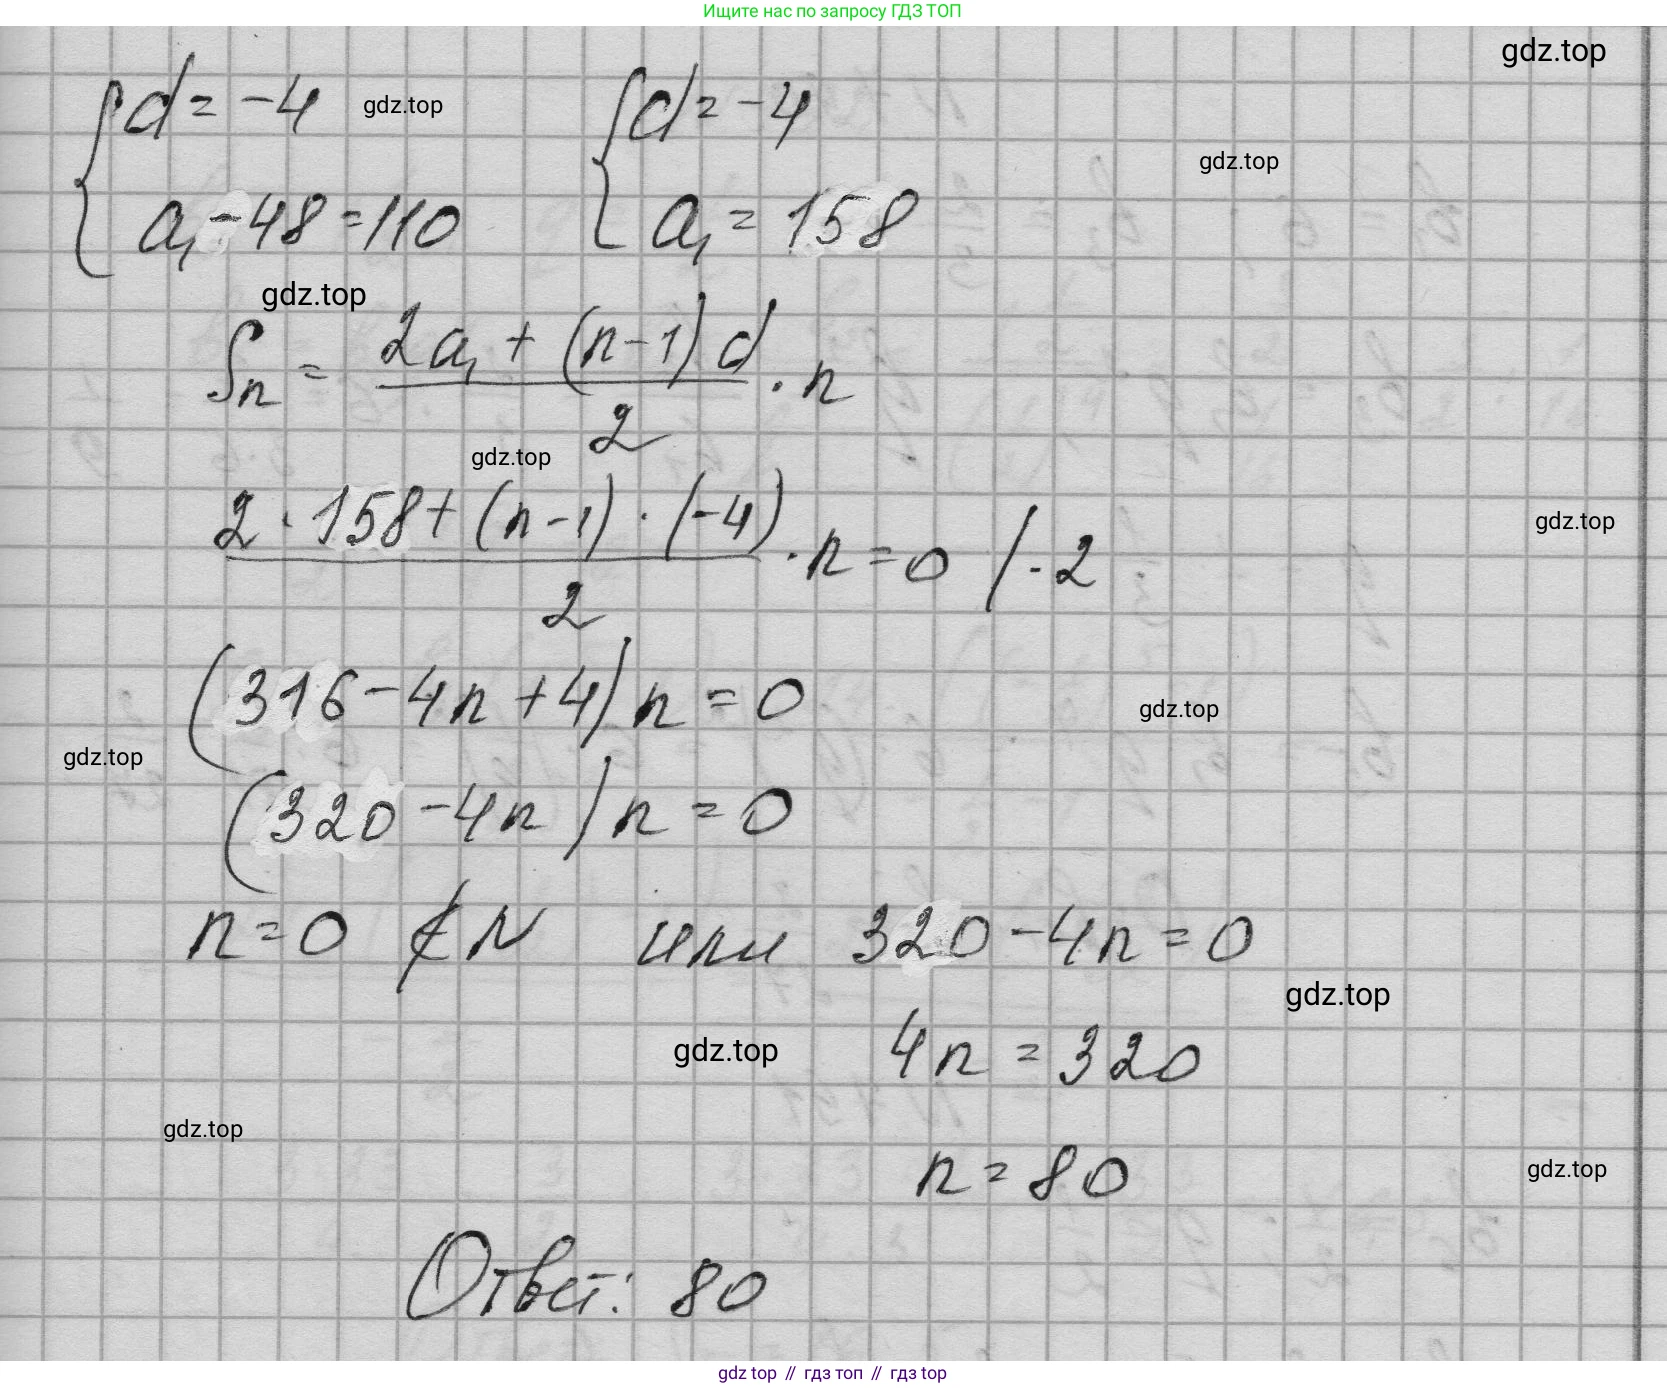 Ищите нас по запросу ГДЗ ТОП
gdz.top
{ d = -4 gdz.top { d = -4
gdz.top
a₁ - 48 = 110 a₁ = 158
gdz.top
Sₙ = (2a₁ + (n-1)d)/2 · n
gdz.top
(2 · 158 + (n-1) · (-4))/2 · n = 0 / · 2
gdz.top
(316 - 4n + 4) n = 0
gdz.top
gdz.top
(320 - 4n) n = 0
n = 0 ∉ N или 320 - 4n = 0
gdz.top
gdz.top
4n = 320
gdz.top
n = 80
gdz.top
Ответ: 80
gdz top // гдз топ // гдз top